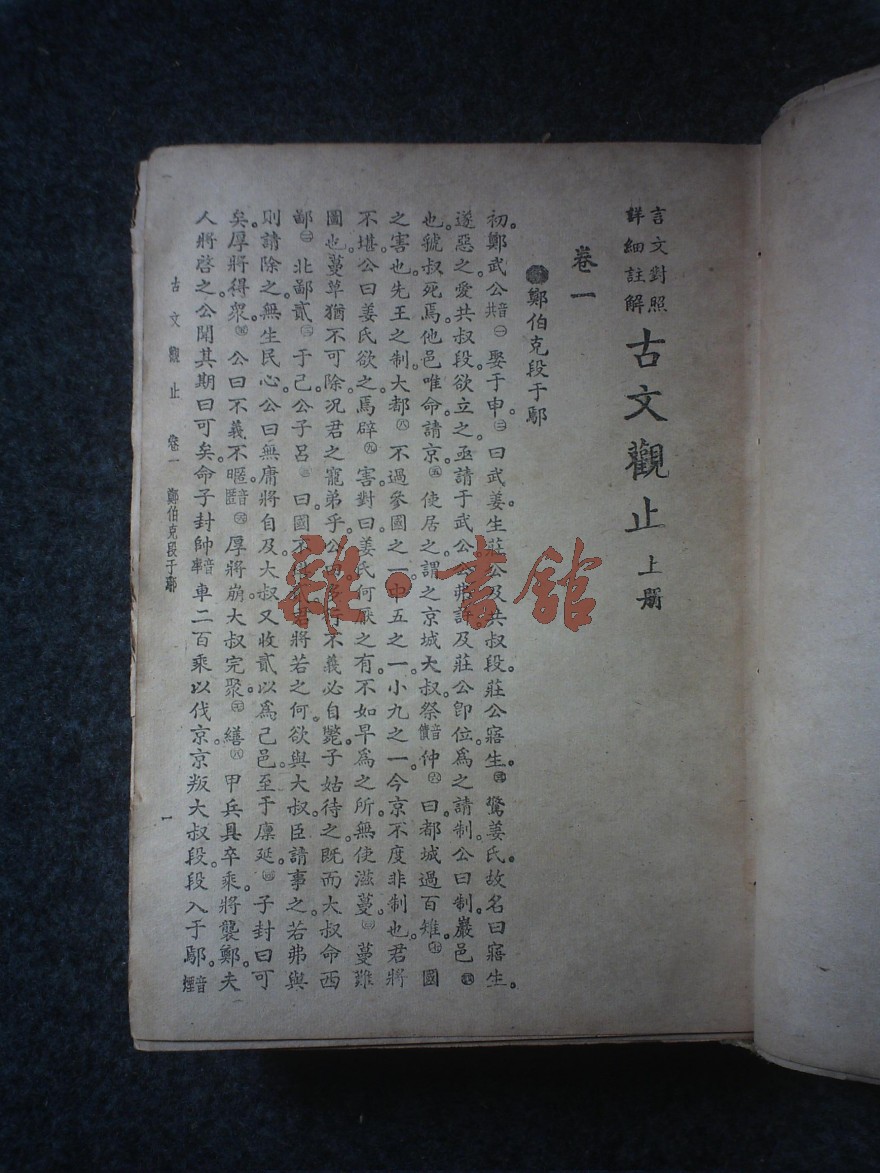 言文對照
詳細註解
古文觀止 上册
卷一
鄭伯克段于鄢
初。鄭武公音共㊀娶于申。㊁曰武姜生莊公及共叔段。莊公寤生。㊂驚姜氏。故名曰寤生。
遂惡之。愛共叔段欲立之。亟請于武公。公弗許。及莊公卽位。爲之請制。公曰制。巖邑
也。虢叔死焉。他邑唯命。請京。㊄使居之。謂之京城大叔。祭音債仲㊅曰都城過百雉。㊆國
之害也。先王之制大都。㊇不過參國之一。中五之一。小九之一。今京不度。非制也。君將
不堪。公曰姜氏欲之。焉辟㊈害。對曰姜氏何厭之有。不如早爲之所。無使滋蔓。㊉蔓難
圖也。蔓草猶不可除。况君之寵弟乎。公曰多行不義必自斃。子姑待之。既而大叔命西
鄙北鄙貳于己。公子呂曰。國不堪貳。君將若之何。欲與大叔。臣請事之。若弗與
則請除之。無生民心。公曰無庸將自及。大叔又收貳以爲己邑。至于廩延。子封曰可
矣。厚將得衆。公曰不義不暱音匿厚將崩。大叔完聚。繕甲兵具卒乘。將襲鄭。夫
人將啓之。公聞其期曰可矣。命子封帥音率車二百乘以伐京。京叛大叔段。段入于鄢。音煙
古文觀止 卷一 鄭伯克段于鄢
一
雜·書館